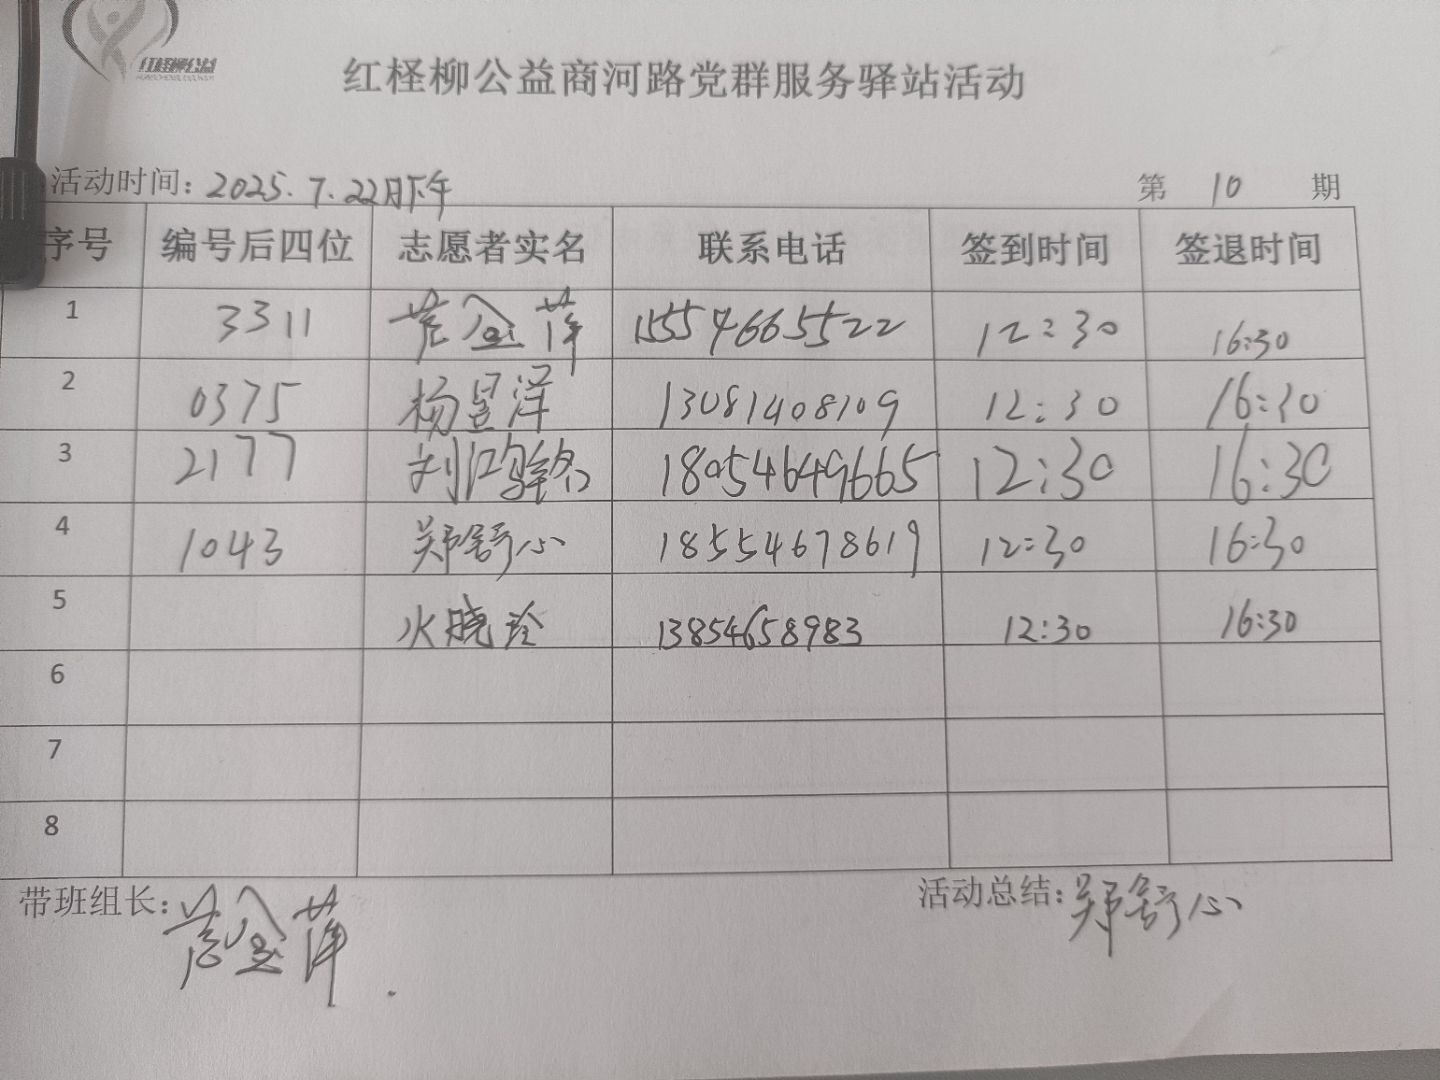 红柽柳公益
红柽柳公益商河路党群服务驿站活动
活动时间：2025.7.22日下午 第 10 期
序号 编号后四位 志愿者实名 联系电话 签到时间 签退时间
1 3311 15554665522 12:30 16:30
2 0375 杨昱泽 13081408109 12:30 16:30
3 2177 18054649665 12:30 16:30
4 1043 郑舒心 18554678619 12:30 16:30
5 火晓玲 13854658983 12:30 16:30
6
7
8
带班组长： 活动总结：郑舒心